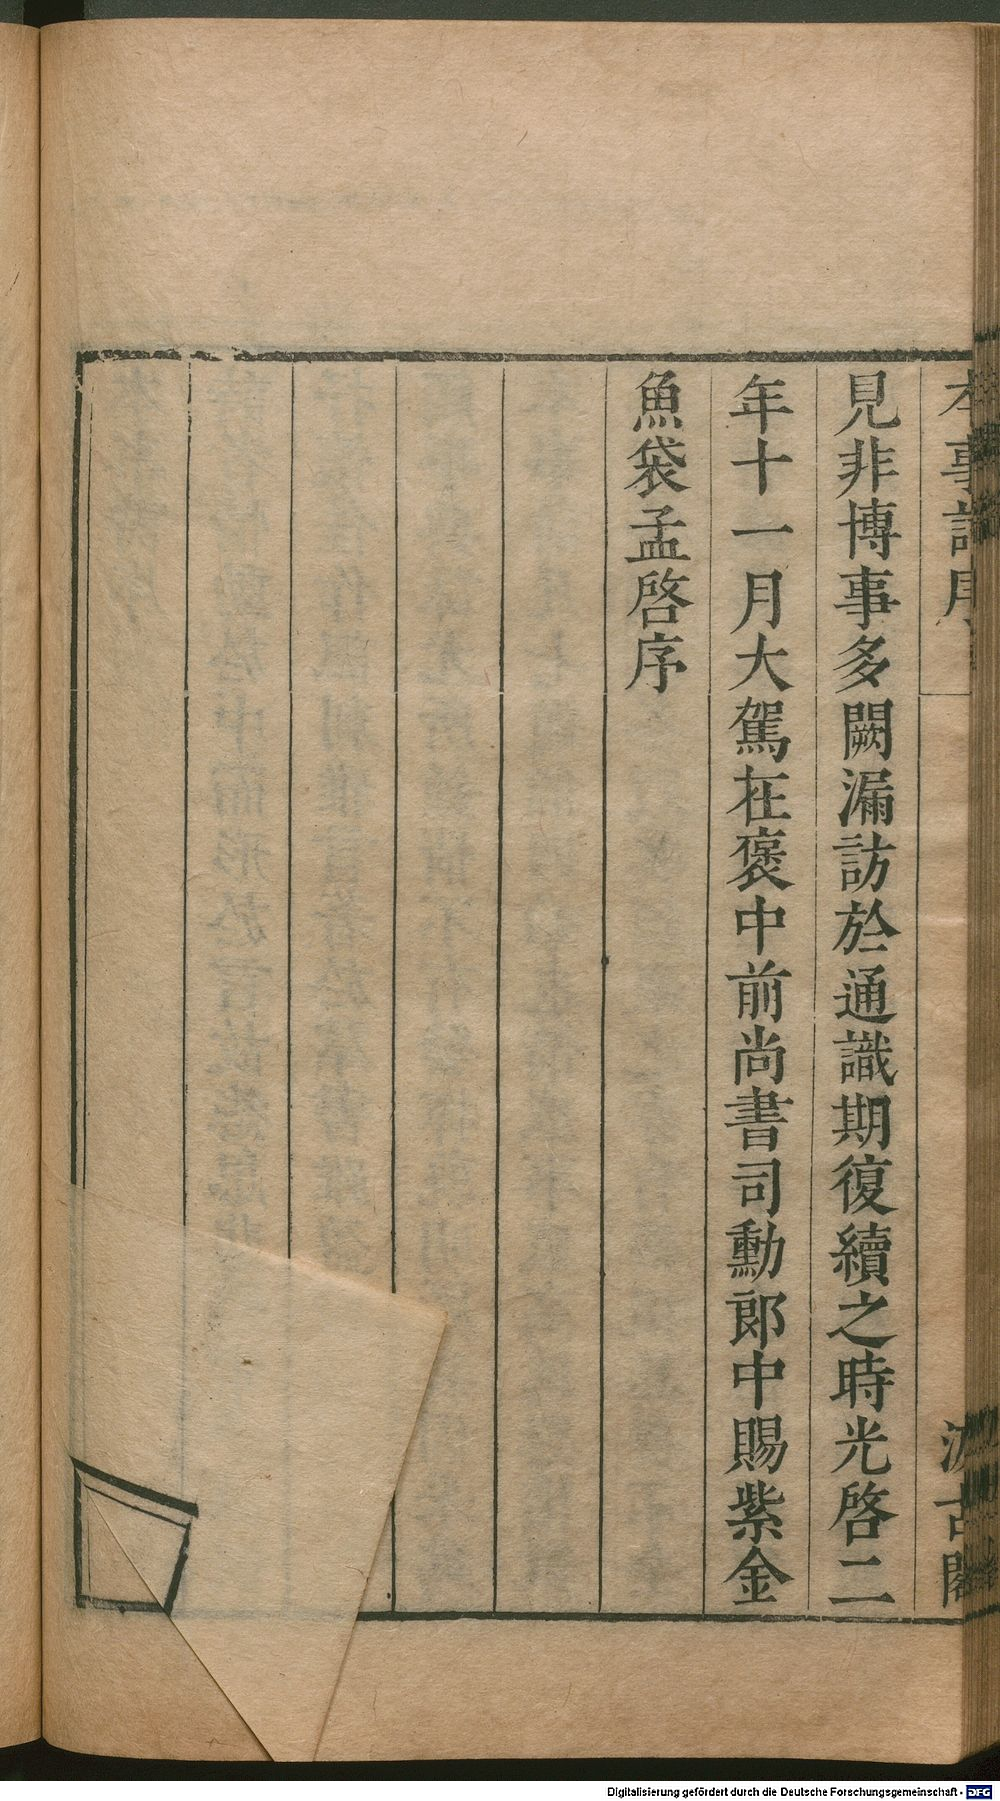 本事詩序
汲古閣
見非博事多闕漏訪於通識期復續之時光啓二
年十一月大駕在褒中前尚書司勳郎中賜紫金
魚袋孟啓序
Digitalisierung gefördert durch die Deutsche Forschungsgemeinschaft - DFG